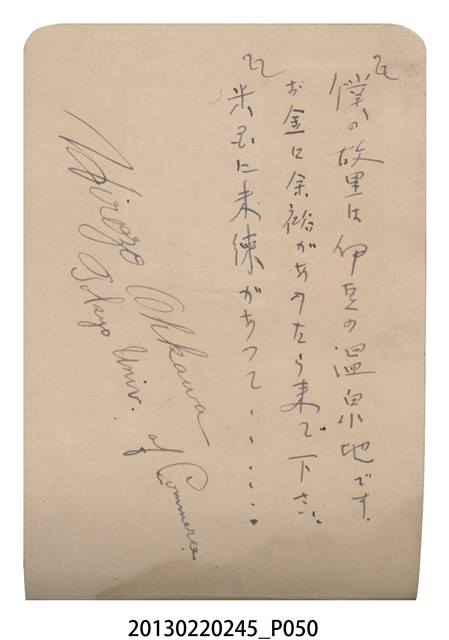 僕の故里は伊豆の温泉地です.
お金に余裕があつたら来て下さい
米国に未練があつて.......
Hirozo Ohkawa
Tokyo Univ. of Commerce.
20130220245_P050